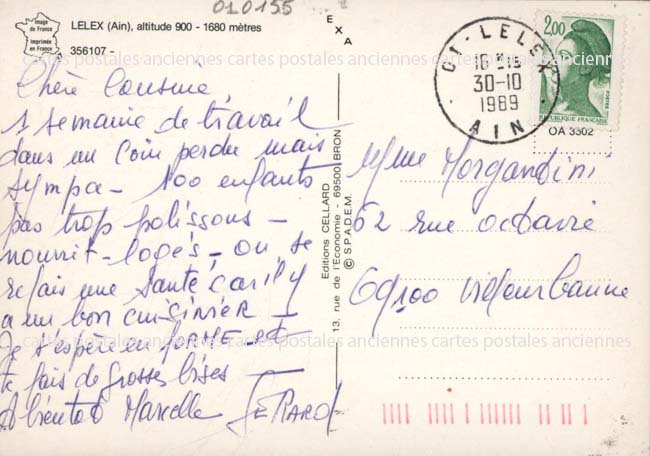 010155
Image de France
Imprimée en France
LELEX (Ain), altitude 900 - 1680 mètres
356107 -
EXA
Chère Cousine,
1 semaine de travail
dans un coin perdu mais
sympa - 100 enfants
pas trop polissons -
nourrit - logés - on se
refais une santé car il y
a un bon cuisinier -
Je t'espère en FORME et
te fais de grosses bises -
A bientot Marcelle GERARD
Editions CELLARD
13, rue de l'Economie - 69500 BRON
© S.P.A.D.E.M.
01 - LELEX
30-10
1989
AIN
2,00
POSTES
REPUBLIQUE FRANCAISE
OA 3302
Mme Morgandini
62 rue octavie
69100 Villeurbanne
cartes postales anciennes cartes postales anciennes cartes postales anciennes